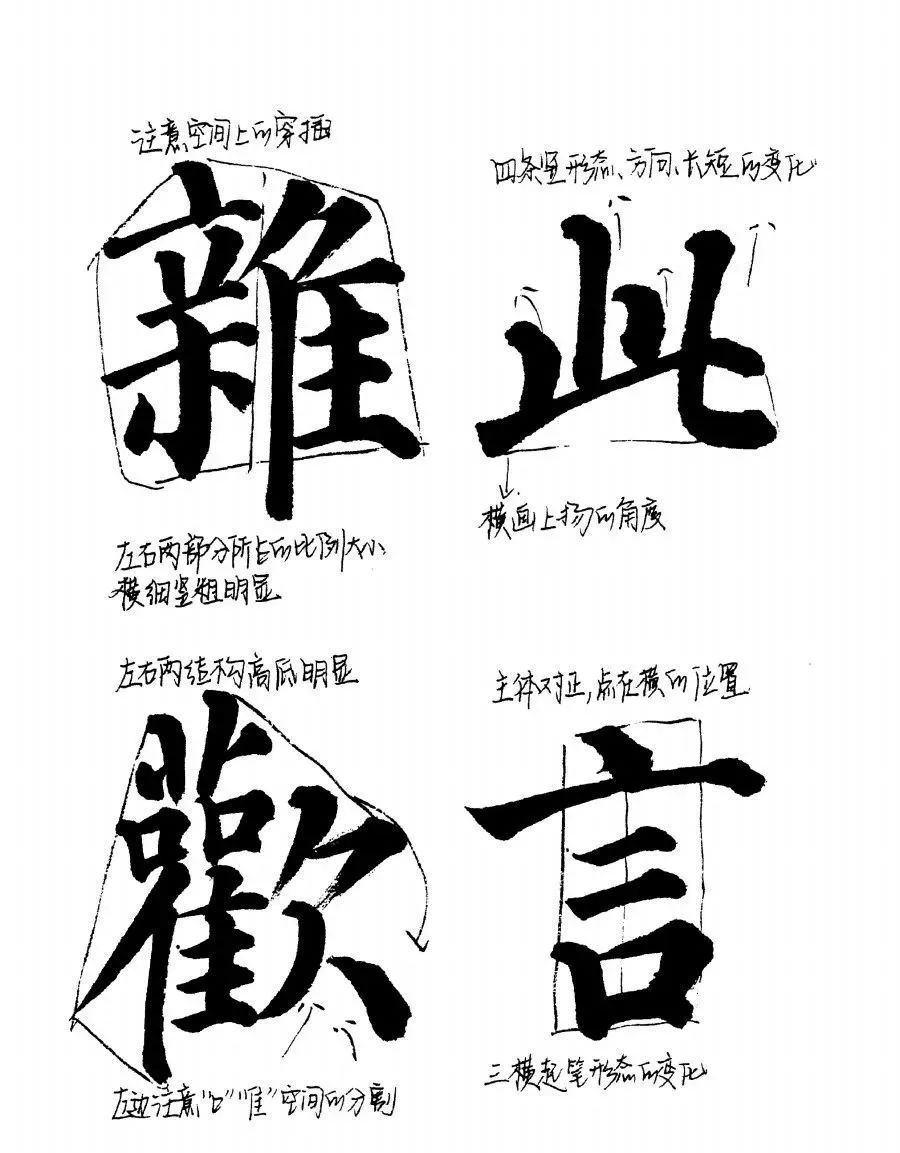 注意空间上的穿插
雜
左右两部分所占的比例大小
横细竖粗明显
四条竖形态、方向、长短的变化
此
横画上扬的角度
左右两结构高低明显
歡
左边注意“口”“隹”空间的分割
主体对正,点在横的位置
言
三横起笔形态的变化